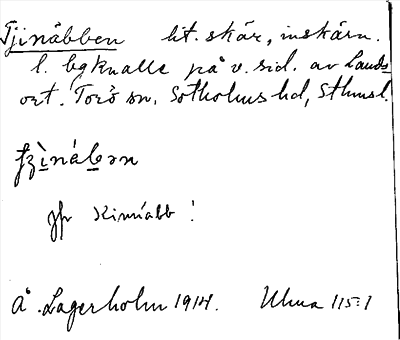 Tjinäbben lit. skär, inskärn.
l. bgknalle på v. sid. av Lands-
ort. Torö sn, Sotholms hd, Sthmsl.
jfr Kinnabb!
Å. Lagerholm 1914. Uhua 115:1